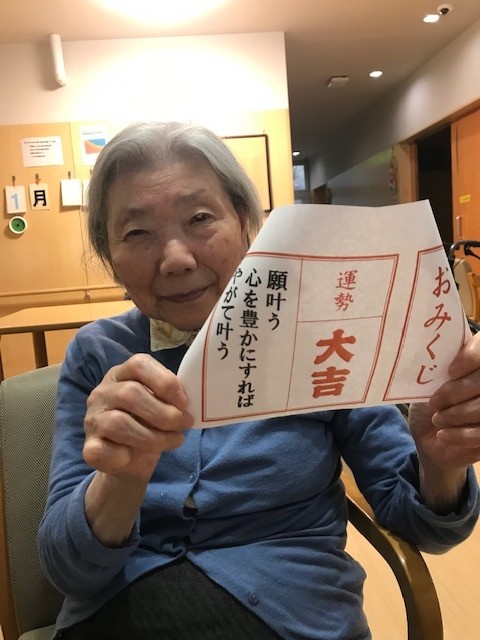 おみくじ
運勢
大吉
願叶う
心を豊かにすれば
やがて叶う
1
月